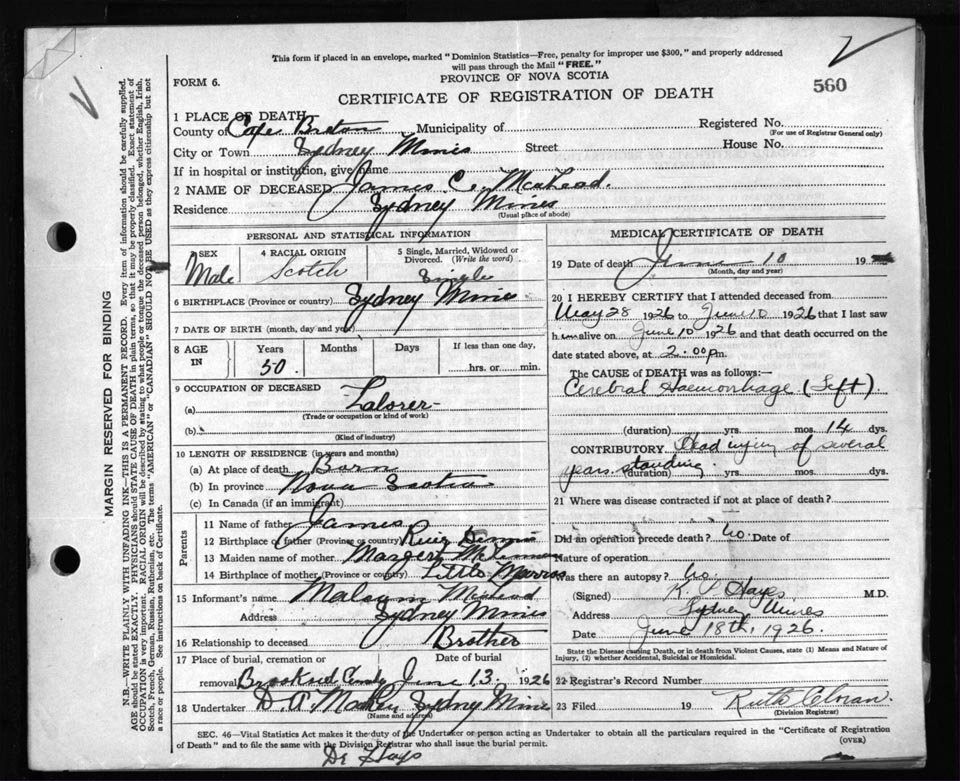 This form if placed in an envelope, marked "Dominion Statistics—Free, penalty for improper use $300," and properly addressed
will pass through the Mail "FREE."
FORM 6.
PROVINCE OF NOVA SCOTIA
560
CERTIFICATE OF REGISTRATION OF DEATH
1 PLACE OF DEATH
County of Cape Breton Municipality of Registered No.
(For use of Registrar General only)
City or Town Sydney Mines Street House No.
If in hospital or institution, give name
2 NAME OF DECEASED James C. McLeod.
Residence Sydney Mines
(Usual place of abode)
PERSONAL AND STATISTICAL INFORMATION
SEX
Male
4 RACIAL ORIGIN
Scotch
5 Single, Married, Widowed or
Divorced. (Write the word)
Single
6 BIRTHPLACE (Province or country) Sydney Mines
7 DATE OF BIRTH (month, day and year)
8 AGE
IN
Years
50.
Months
Days
If less than one day,
hrs. or min.
9 OCCUPATION OF DECEASED
(a) Laborer
(Trade or occupation or kind of work)
(b)
(Kind of industry)
10 LENGTH OF RESIDENCE (in years and months)
(a) At place of death Born
(b) In province Nova Scotia
(c) In Canada (if an immigrant)
Parents
11 Name of father James
12 Birthplace of father (Province or country) River Dennis
13 Maiden name of mother
14 Birthplace of mother (Province or country) Little
15 Informant's name Malcum McLeod
Address Sydney Mines
16 Relationship to deceased Brother
17 Place of burial, cremation or Date of burial
removal June 13 1926
18 Undertaker Sydney Mines
(Name and address)
MEDICAL CERTIFICATE OF DEATH
19 Date of death June 10 19
(Month, day and year)
20 I HEREBY CERTIFY that I attended deceased from
May 28 1926 to June 10 1926 that I last saw
him alive on June 10 1926 and that death occurred on
date stated above, at 2.00 pm.
The CAUSE of DEATH was as follows:—
Cerebral Haemorrhage (Left).
(duration) yrs. mos. 14 dys.
CONTRIBUTORY Head injury of several
years standing.
(duration) yrs. mos. dys.
21 Where was disease contracted if not at place of death?
Did an operation precede death? No. Date of
Nature of operation
Was there an autopsy? No
(Signed) Hayes M.D.
Address Sydney Mines
Date June 18th, 1926.
State the Disease causing Death, or in death from Violent Causes, state (1) Means and Nature of
Injury, (2) whether Accidental, Suicidal or Homicidal.
22 Registrar's Record Number
23 Filed 19 Ruth
(Division Registrar)
SEC. 46—Vital Statistics Act makes it the duty of the Undertaker or person acting as Undertaker to obtain all the particulars required in the "Certificate of Registration
of Death" and to file the same with the Division Registrar who shall issue the burial permit.
(OVER)
Dr Hays
MARGIN RESERVED FOR BINDING
N.B.—WRITE PLAINLY WITH UNFADING INK—THIS IS A PERMANENT RECORD. Every item of information should be carefully supplied.
AGE should be stated EXACTLY. PHYSICIANS should STATE CAUSE OF DEATH in plain terms, so that it may be properly classified. Exact statement of
OCCUPATION is very important. RACIAL ORIGIN will be described by stating to what people or tongue the deceased person belonged, whether English, Irish,
Scotch, French, German, Russian, Ruthenian, etc. The terms "AMERICAN" or "CANADIAN" SHOULD NOT BE USED as they express citizenship but not
a race or people. See instructions on back of Certificate.